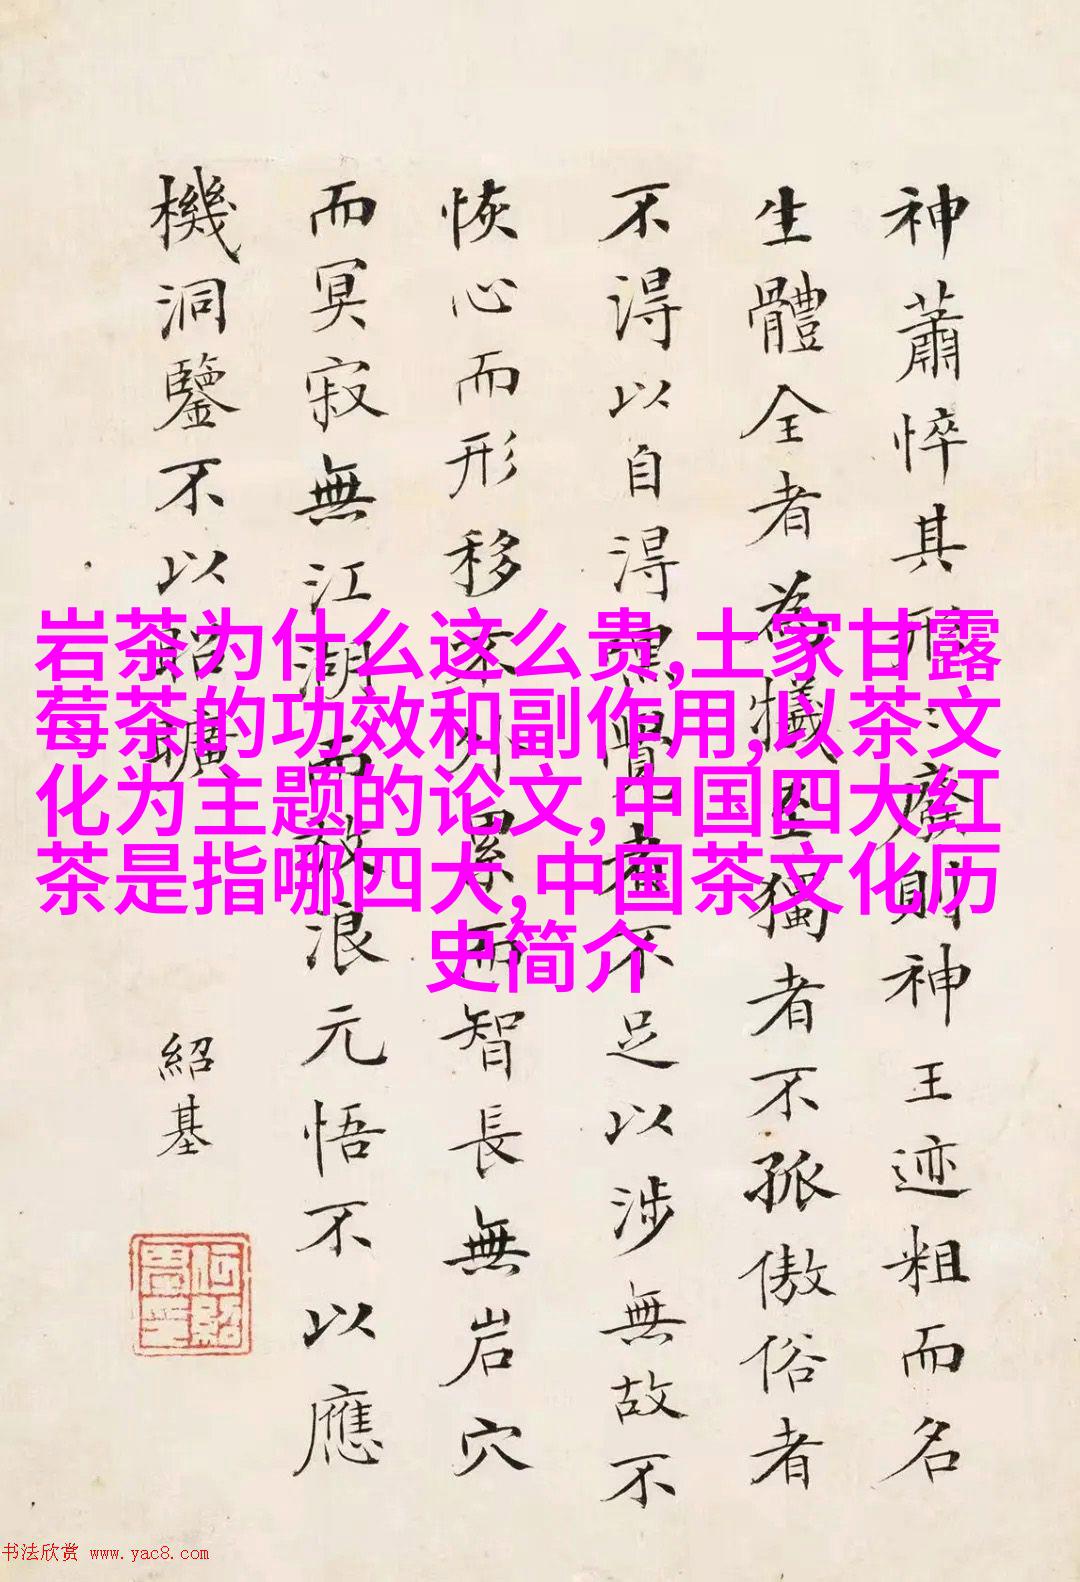 神蕭悴其形廢則神王迹粗而名
生體全者為犧生獨者不孤傲俗者
不得以自得默覺者不足以涉無故不
恢心而形移不外累而智長無岩穴
而冥寂無江湖而放浪元悟不以應
機洞鑒不以昭曠
紹基
何紹基印
岩茶为什么这么贵,土家甘露
莓茶的功效和副作用,以茶文
化为主题的论文,中国四大红
茶是指哪四大,中国茶文化历
史简介
书法欣赏 www.yac8.com